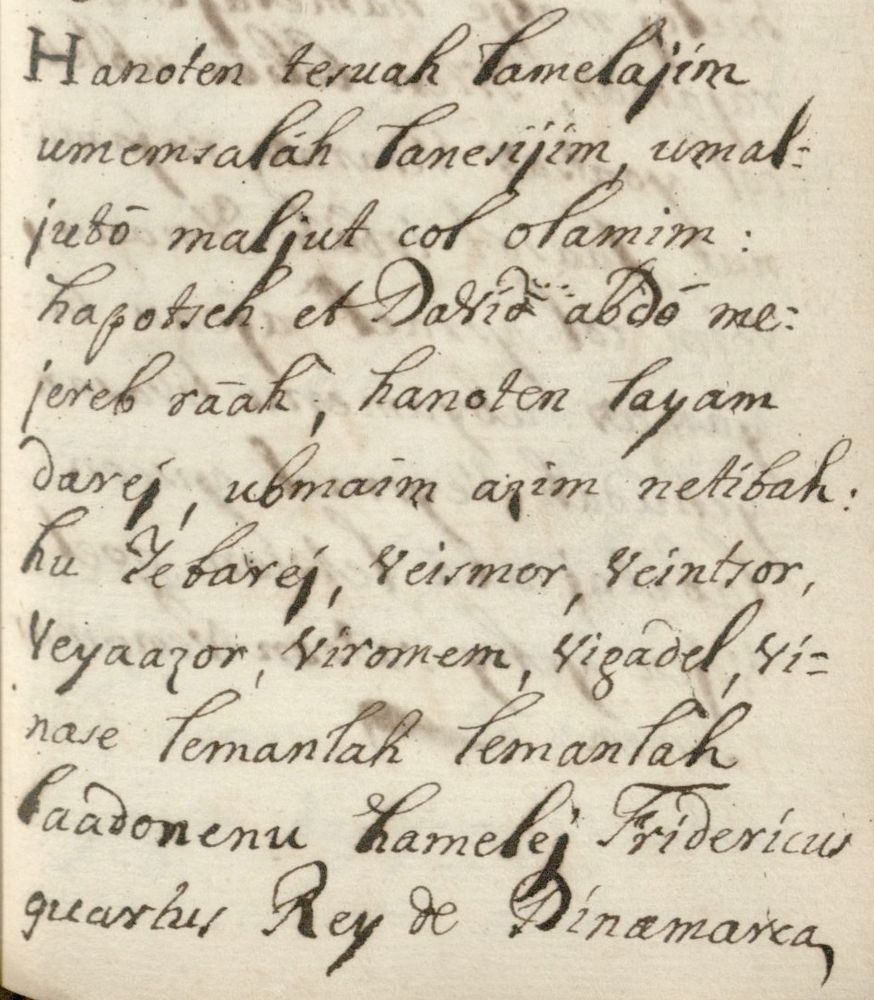 Hanoten tesuah lamelajim
umemsaláh lanesijim, umal=
jutō maljut col olamim :
hapotseh et David abdō me=
jereb rāah, hanoten layam
darej, ubmaim azim netibah :
hu Jebarej, Veismor, Veintsor,
Veyaazor, Viromem, Vigadel, Vi=
nase lemanlah lemanlāh
laadonenu hamelej Fridericus
quartus Rey de Dinamarca,